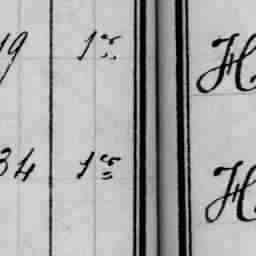 19 1er H
34 1er H